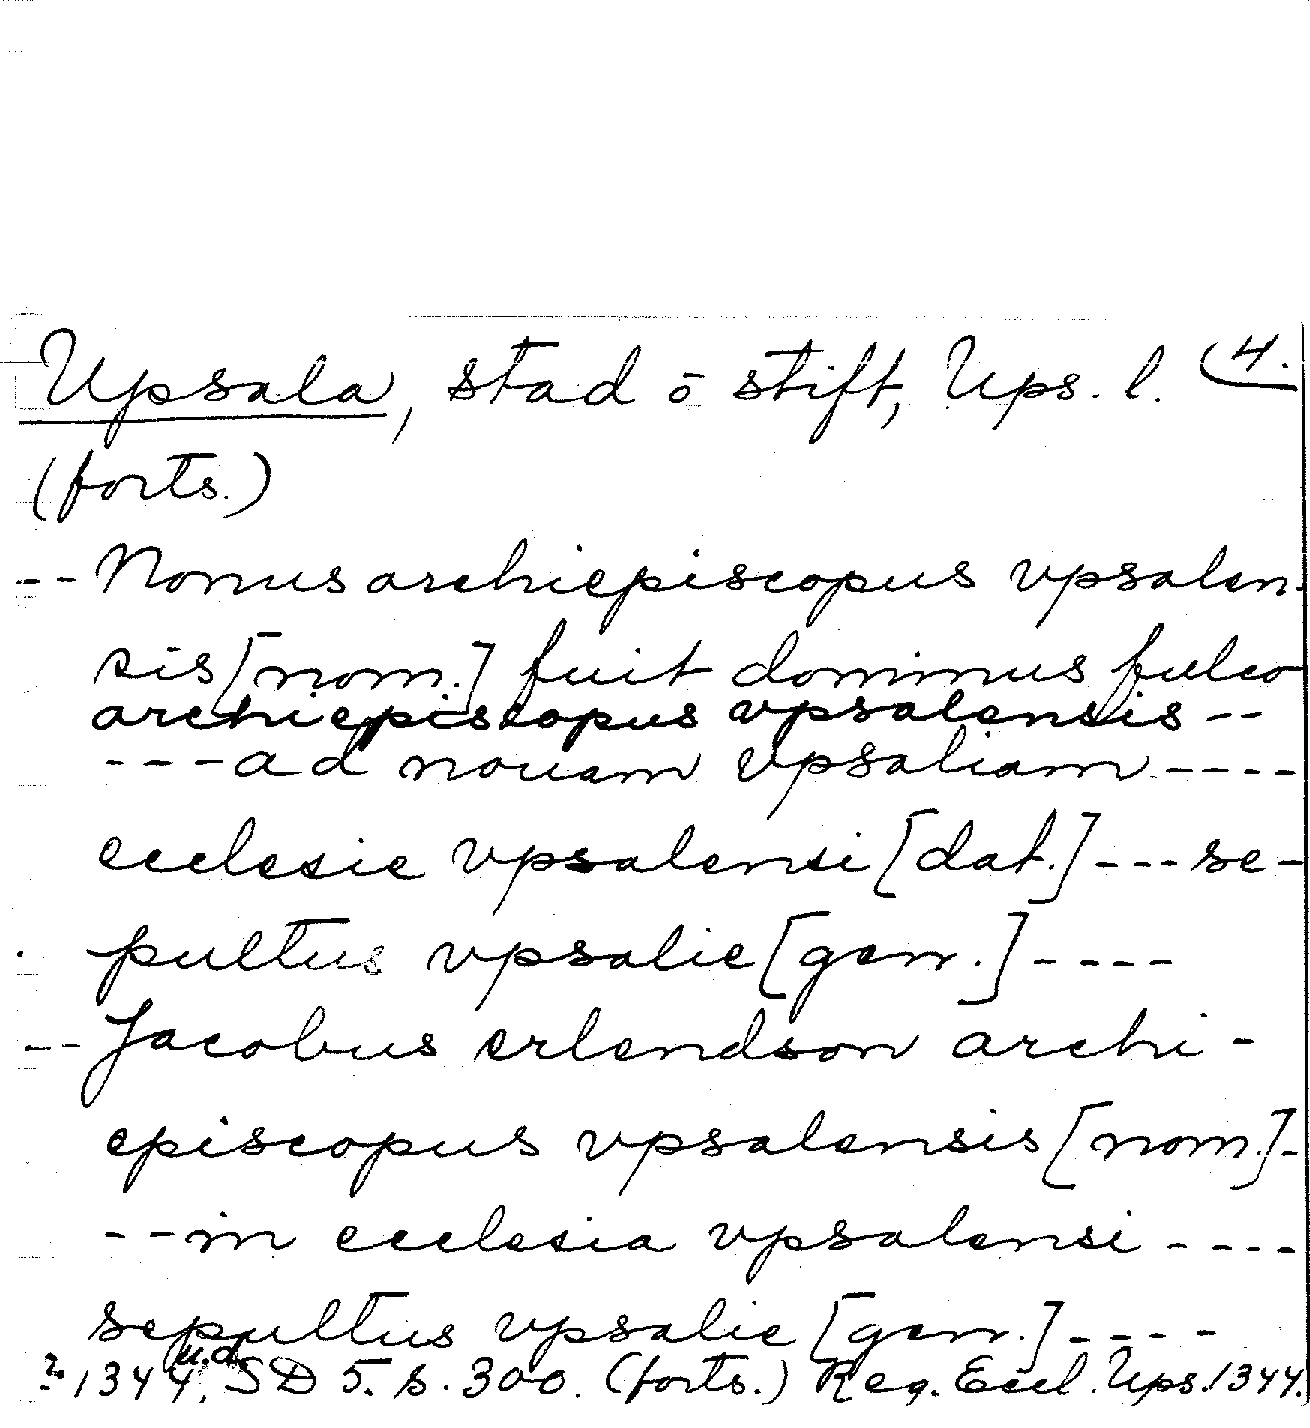 Upsala, stad o stift, Ups. l. (4.
(forts.)
-- Nonus archiepiscopus vpsalen-
sis [nom.] fuit dominus fulco
archiepiscopus vpsalensis --
--- ad nouam vpsaliam ----
ecclesie vpsalensi [dat.] --- se-
pultus vpsalie [gen.] ----
-- Jacobus erlendson archi-
episcopus vpsalensis [nom.] -
-- in ecclesia vpsalensi ----
sepultus vpsalie [gen.] ----
1344 u.d. SD 5. s. 300. (forts.) Reg. Eccl. Ups. 1344.